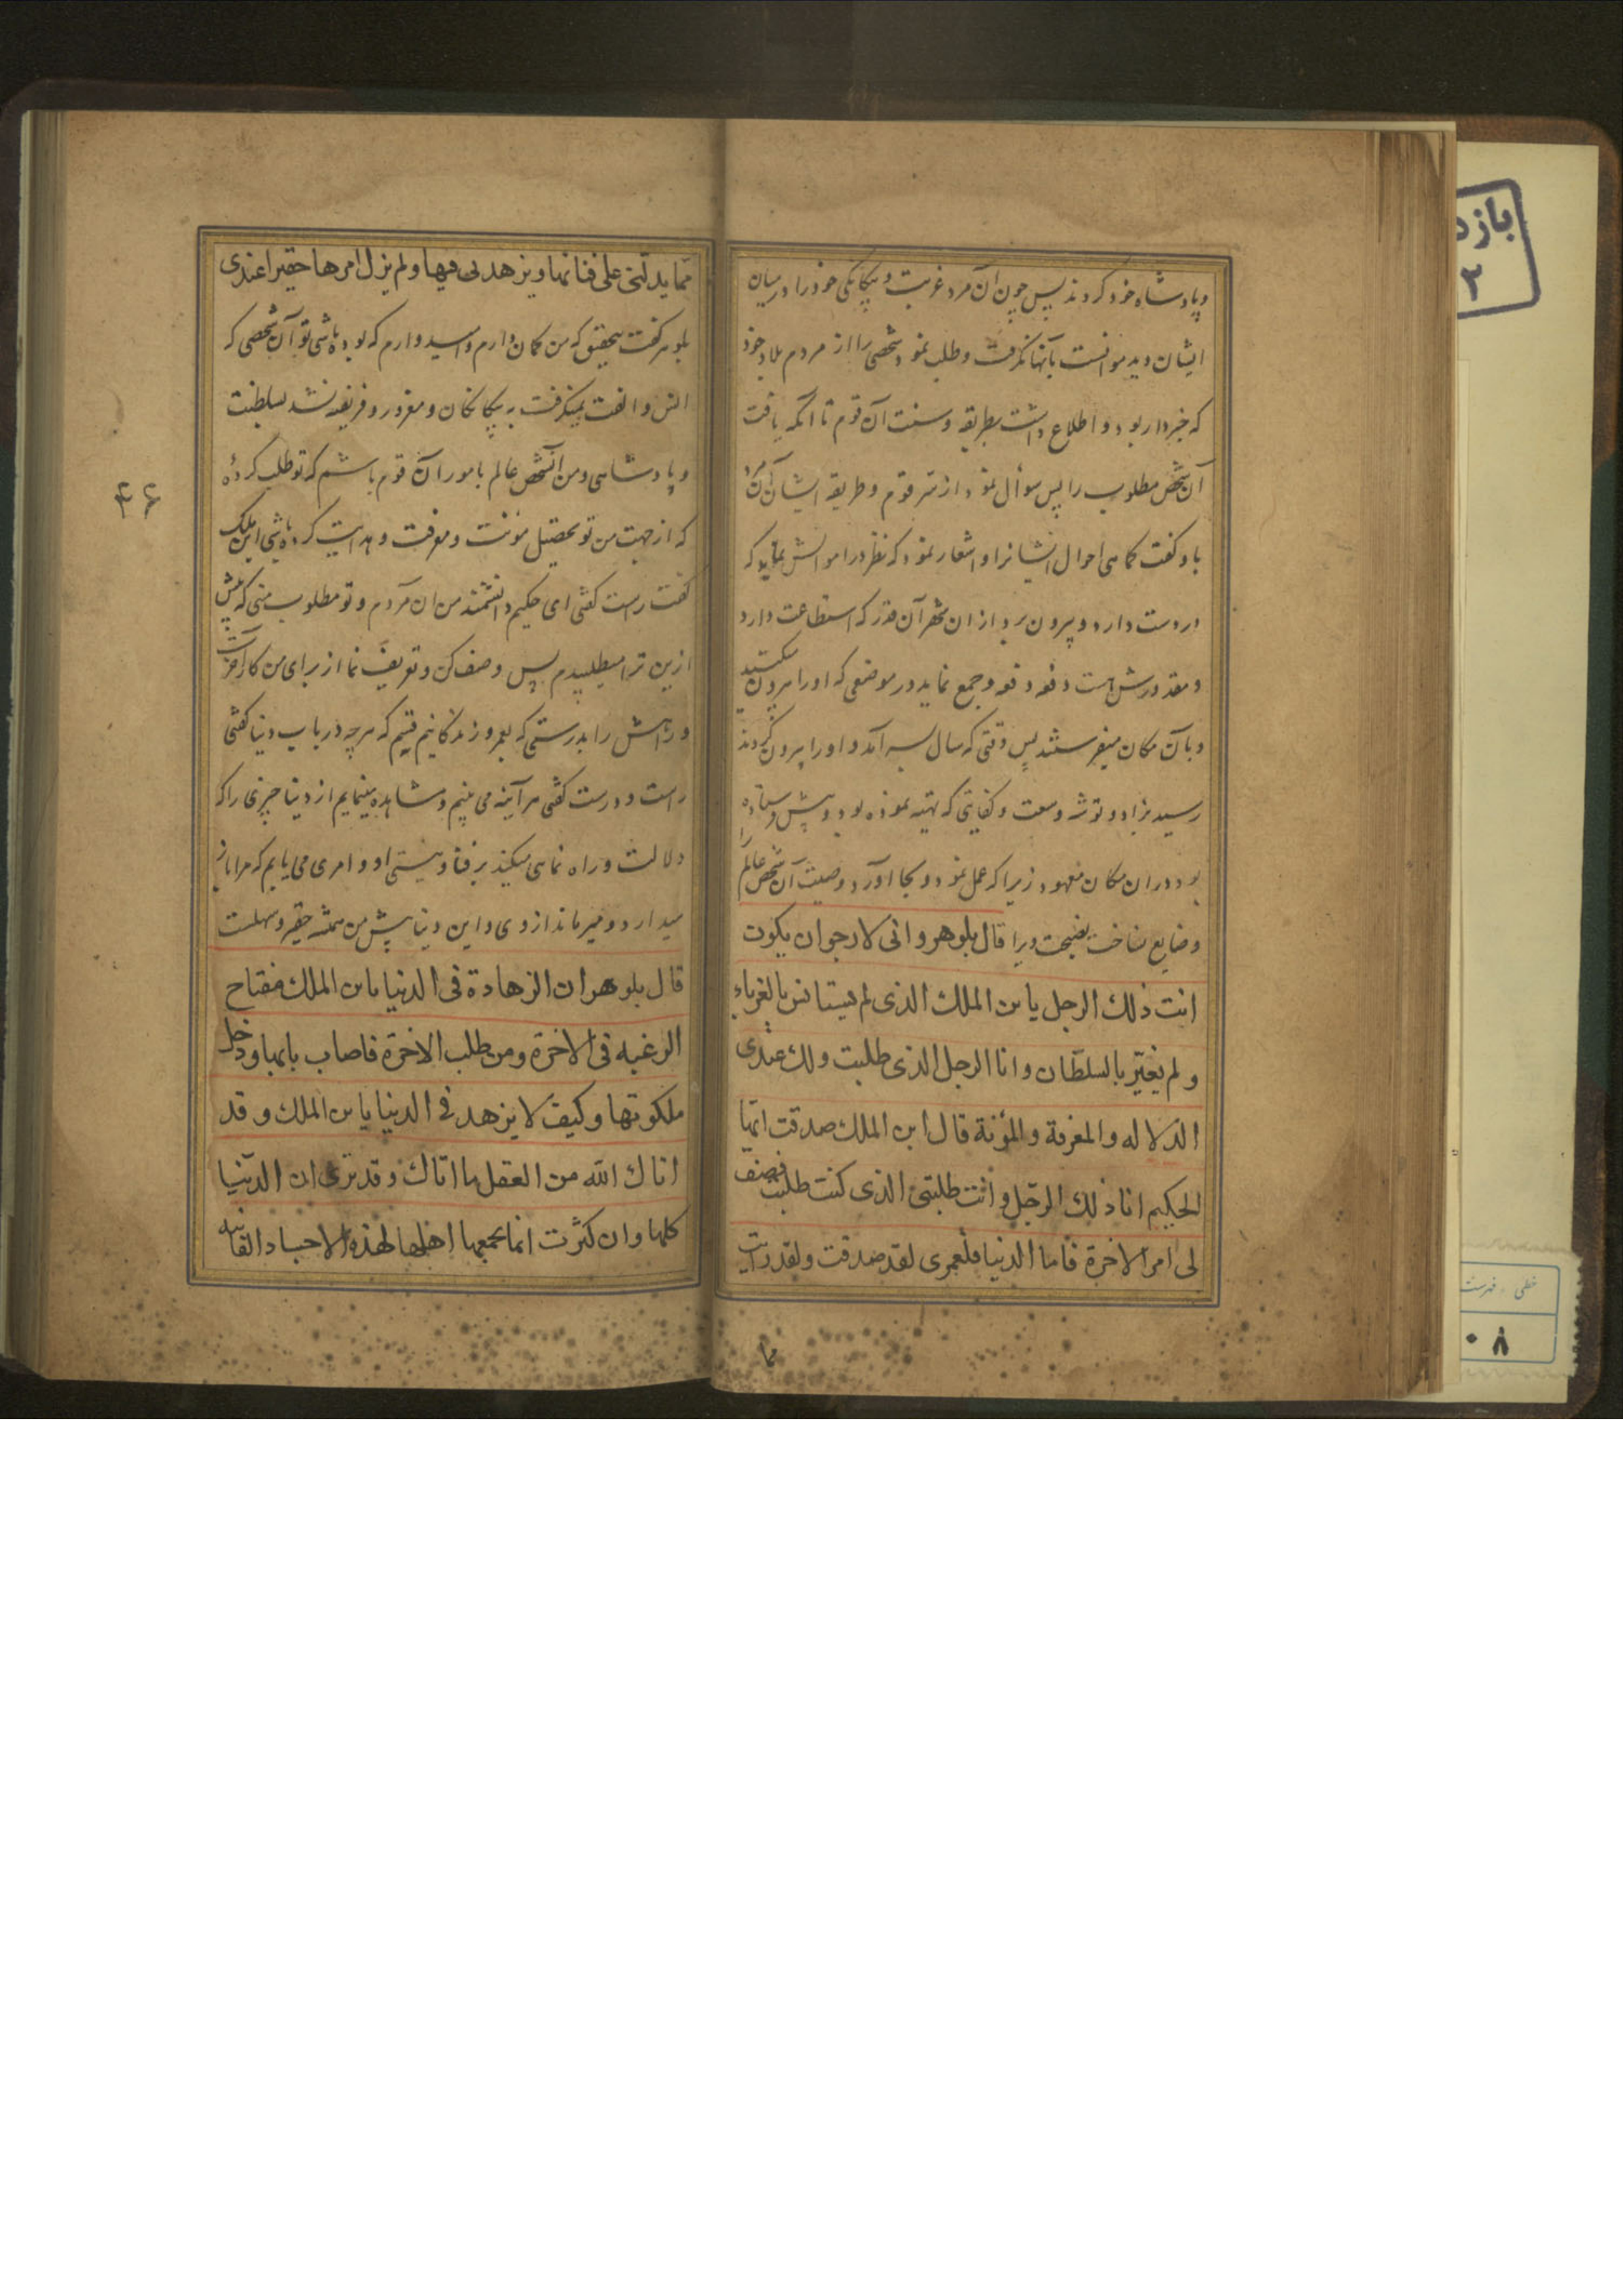 و پادشاه خود کردند پس چون آن مرد غربت و بیگانگی خود را در میان
ایشان دید موانست بآنها نگرفت و طلب نمود شخصی را از مردم بلاد خود
که خبردار بود و اطلاع داشت بطریقه و سنت آن قوم تا آنکه یافت
آن شخص مطلوب را پس سوأل نمود از سر قوم و طریقه ایشان آن مرد
باو گفت کماهی احوال ایشانرا و اشعار نمود که نظر در اموالش نماید که
در دست دارد و بیرون برد از ان شهر آن قدر که استطاعت دارد
و مقدورش هست دفعه دفعه و جمع نماید در موضعی که اورا بیرون میکنند
و بآن مکان میفرستند پس وقتی که سال بسر آمد و اورا بیرون کردند
رسید بزاد و توشه و سعت و کفایتی که تهیه نموده بود و پیش فرستاده
بود در ان مکان معهود زیرا که عمل نمود و بجا آورد وصیت آن شخص عالم را
و ضایع نساخت نصیحت ویرا قال بلوهر وانی لارجو ان یکون
انت ذلك الرجل یا بن الملك الذی لم یستانس بالغرباء
ولم یغتر بالسلطان وانا الرجل الذی طلبت ولك عندی
الدلاله والمعرفة والمؤنة قال ابن الملك صدقت ایها
الحکیم انا ذلك الرجل وانت طلبتی الذی کنت طلبت فصف
لی امر الاخرة فأما الدنیا فلعمری لقد صدقت ولقد رایت
مما
مما یدلنی علی فنائها ویزهدنی فیها ولم یزل امرها حقیرا عندی
بلوهر گفت بتحقیق که من گمان دارم و امیدوارم که بوده باشی تو آن شخصی که
انس و الفت نمیگرفت به بیگانگان و مغرور و فریفته نشد بسلطنت
و پادشاهی و من آنشخص عالم بامور آن قوم باشم که تو طلب کردهٔ
که از جهت من تو تحصیل مؤنت و معرفت و هدایت کرده باشی ابن ملک
گفت راست گفتی ای حکیم دانشمند من ان مردم و تو مطلوب منی که پیش
ازین ترا میطلبیدم پس وصف کن و تعریف نما از برای من کار آخرت
و راهش را بدرستی که بعمر و زندگانیم قسم که هرچه در باب دنیا گفتی
راست و درست گفتی هر آینه می بینم و مشاهده مینمایم از دنیا چیزی را که
دلالت و راه نمائی میکند بر فنا و نیستی او و امری می یابم که مرا باز
میدارد و میرماند از وی و این دنیا پیش من همیشه حقیر و سهلست
قال بلوهر ان الزهادة فی الدنیا یا بن الملك مفتاح
الرغبه فی الاخرة ومن طلب الاخرة فاصاب بابها ودخل
ملکوتها وکیف لا یزهد فی الدنیا یا بن الملك وقد
اتاك الله من العقل ما اتاك وقد تری ان الدنیا
کلها وان کثرت انما یجمعها اهلها لهذه الاجساد الفانیه
۴۶
بازد
۲
خطی - فهرست
۰۸